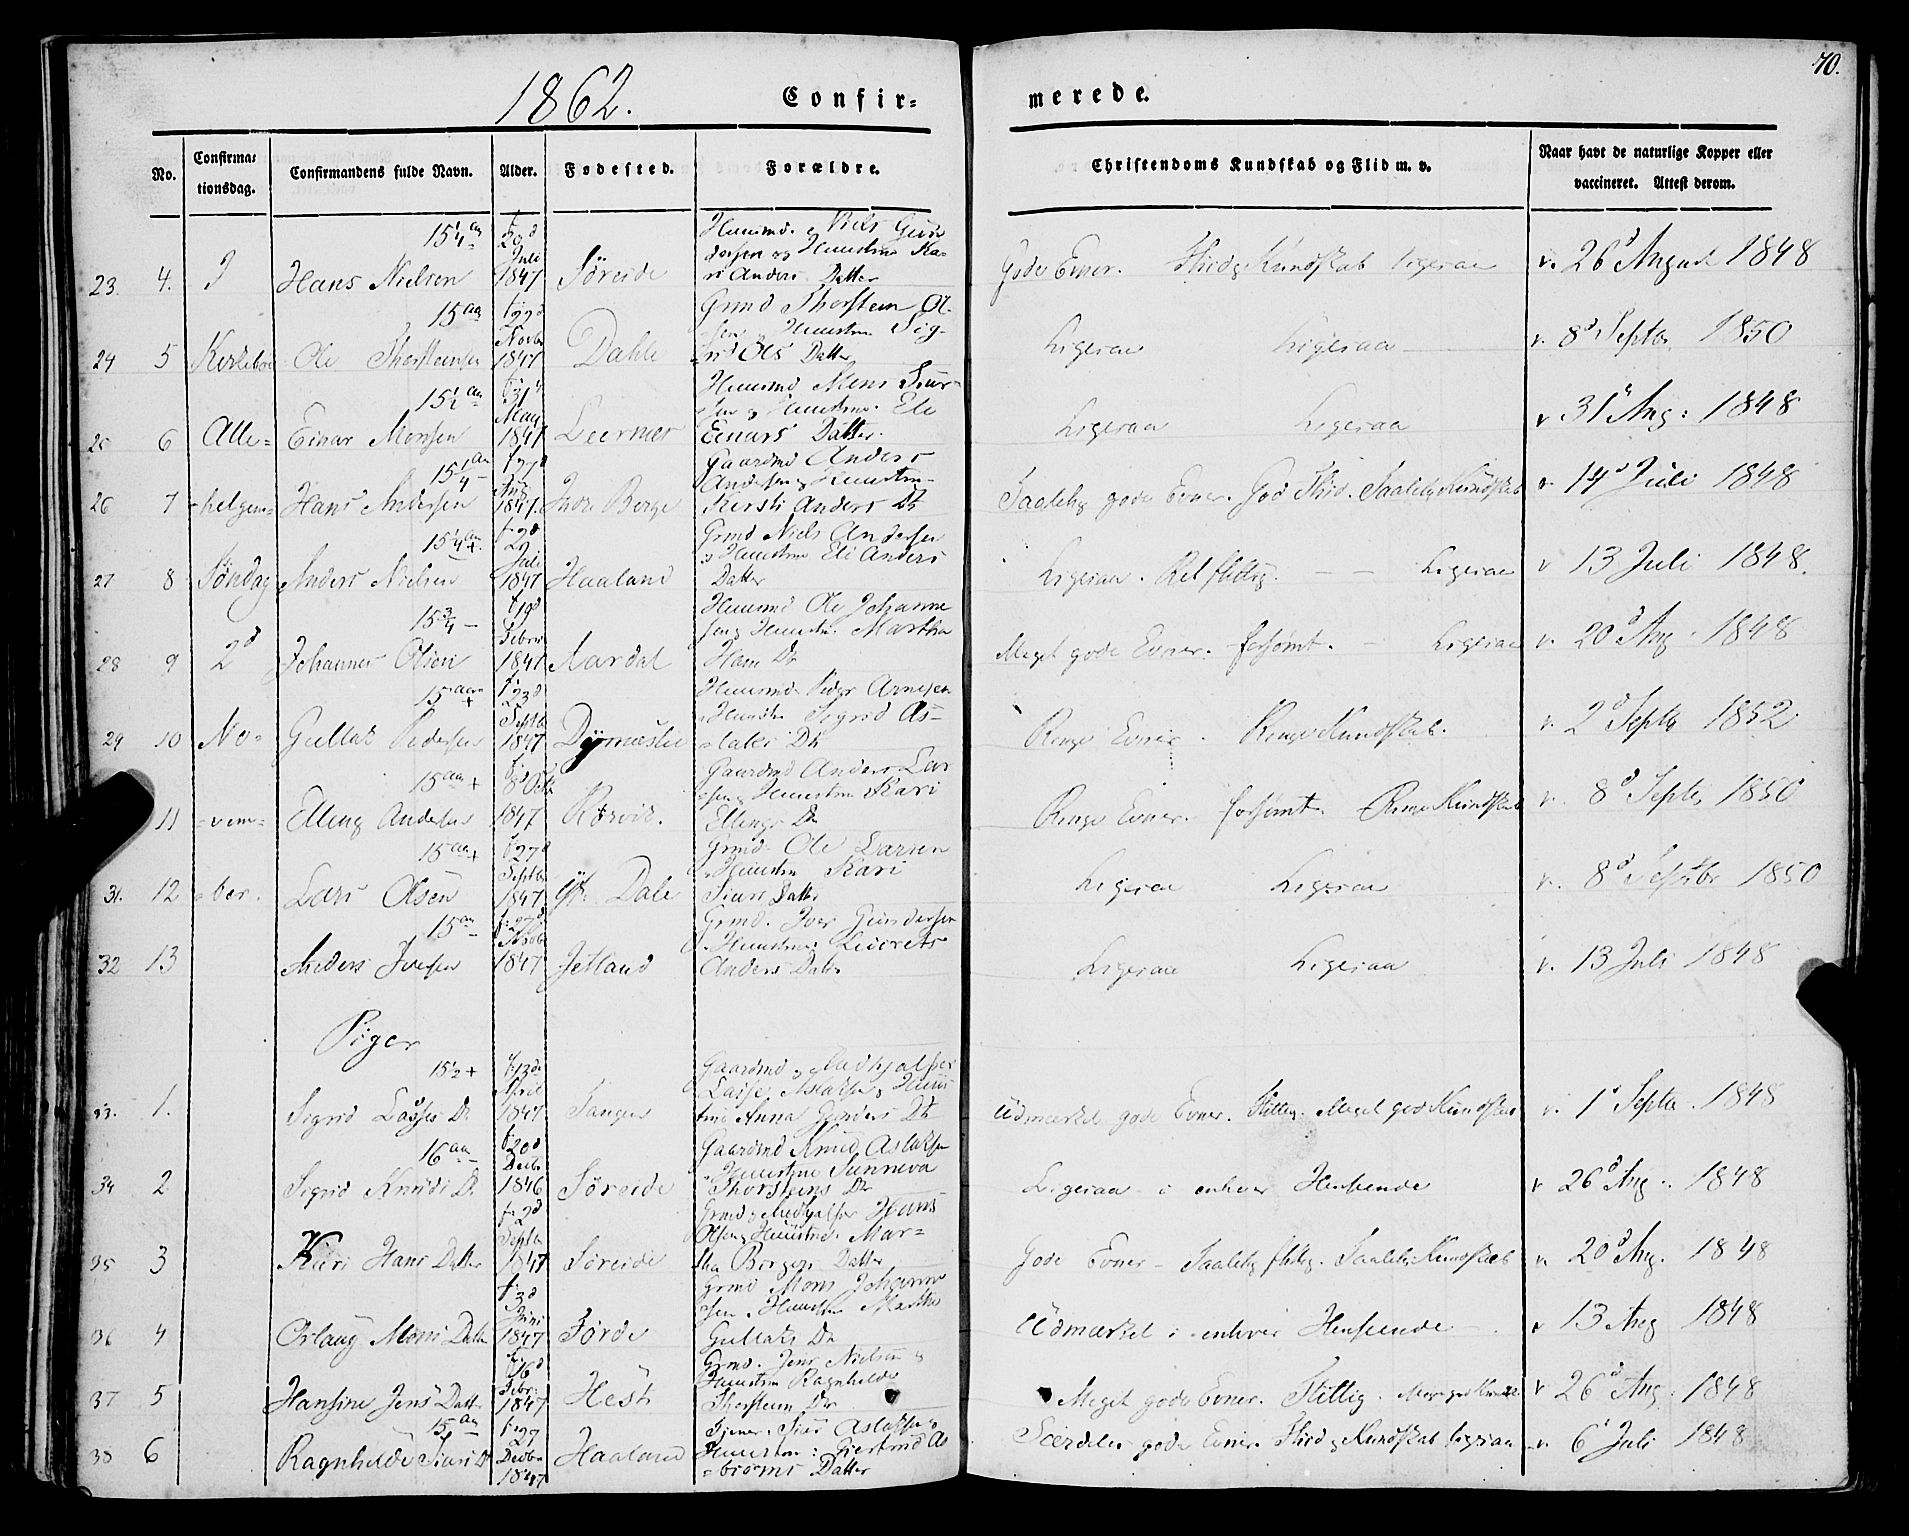 70.
1862.
Confir=
merede.
No.
Confirma=
tionsdag.
Confirmandens fulde Navn.
Alder.
Fødested.
Forældre.
Christendoms Kundskab og Flid m. v.
Naar havt de naturlige Kopper eller
vaccineret. Attest derom.
23. 4. I Hans Nielsen 15¼ f. 20d Juli 1847 Søreide
Huusmd. og Niels Gun
dersen og Huustru Ka=
ri Anders Datter
Gode Evner. Flid og Kundskab ligesaa v. 26d August 1848
24 5 Kirkeboe Ole Thorsteinsen 15 aar f. 22d Novbr 1847 Dahle
Grmd Thorstein Ol-
sen og Huustru Sig-
rid Ols Datter
Ligesaa Ligesaa v. 8d Septbr 1850
25 6 Alle= Einar Monsen 15½ aar f. 31te May 1847
Huusmd Mons Siur-
sen og Huustru Eli
Einars Datter.
Ligesaa Ligesaa v 31te Aug: 1848
26 7 =helgens= Hans Andersen 15¼ aar f. 27d Aug 1847. Indre Berge
Gaardmd Anders
Andersen og Huustru
Kersti Anders Dtr
Saadelig gode Evner. God Flid. Saadelig Kundskab v 14d Juli 1848
27 8 Søndag Anders Nielsen 15¼ aar + f. 2d Juli 1847 Haaland
Grmd Niels Andersen
og Huustru Eli Anders
Datter
Ligesaa. Ret flittig. — — Ligesaa v 13 Juli 1848.
28 9 2d Johannes Olsen 15¾ — f. 19d Februar 1847 Aardal
Huusmd Ole Johanne
sen og Huustru Martha
Hans Dr
Meget gode Evner. forsømt. — Ligesaa v. 20d Aug. 1848
29 10 No= Gullak Pedersen 15 aar + f. 23d Septbr 1847
Huusmd. Peder Arnesen
og Huustru Sigrid As-
=laks Dtr
Ringe Evner. Ringe Kundskab. v. 2d Septbr 1852
11 =vem= Elling Andersen 15 aar + f. 8d Octbr 1847 Rørvik.
Gaardmd Anders Lar
sen og Huustru Kari
Ellings Dr
Ringe Evner. forsømt. Ringe Kundskab v. 8d Septbr 1850
31. 12 =ber. Lars Olsen 15 aar + f. 27d Septbr 1847 Dale
Grmd. Ole Larsen
og Huustru Kari
Siurs Datter
Ligesaa Ligesaa v. 8d Septbr 1850
32 13 Anders Iversen 15 aar f. 27d Novbr 1847 Jetland
Grmd. Iver Gundersen
og Huustru
Anders Datter
Ligesaa Ligesaa v. 13 Juli 1848
Piger
33. 1. Sigrid Lasses Dr 15½ + f. 13de April 1847.
Gaardmd og Medhjælper
Lasse Aslaksen og Huus
tru Anna Gunders Dtr
Udmærket gode Evner. Flittig. Meget god Kundskab v. 1d Septbr. 1848
34 2 Sigrid Knuds Dr 16 aar — f. 20d Decbr 1846 Søreide
Gaardmd Knud Aslaksen
og Huustrue Sunneva
Thorsteins Dr
Ligesaa i enhver Henseende v 26d Aug. 1848
35 3 Kari Hans Datter f. 2d Septbr 1847 Søreide
Grmd og Medhjælper Hans
Olsen og Huustru. Mar=
tha Børges Datter
Gode Evner - Saadelig flittig. Saadelig Kundskab v. 20d Aug. 1848
36 4 Orlaug Mons Datter f. 3d Juni 1847 Førde
Grmd Mons Johanne
sen, Huustru Martha
Gullaks Dr
Udmærket i enhver Henseende v 13 Aug 1848
37 5 Hansine Jens Datter f. 16d Febr: 1847 Hest
Grmd. Jens Nielsen &
Huustru Ragnhilde
Thorsteins Dr
Meget gode Evner. Flittig. v 26d Aug. 1848
38 6 Ragnhilde Siurs Dr 15 aar f. 27 Decbr 1847 Haaland
Tjener. Siur Aslaksen og
Huustru: Giertrud As
=biørns Datter
Særdeles gode Evner. Flid og Kundskab ligesaa v. 6d Juli 1848